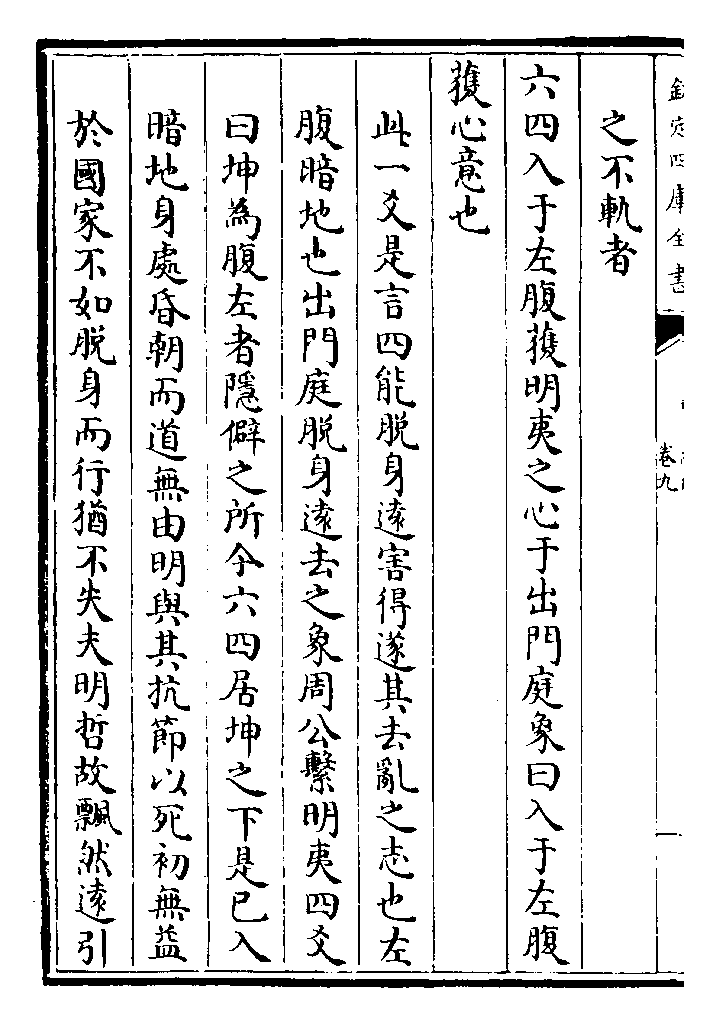 欽定四庫全書
卷九
之不軌者
六四入于左腹獲明夷之心于出門庭象曰入于左腹
獲心意也
此一爻是言四能脫身遠害得遂其去亂之志也左
腹暗地也出門庭脫身遠去之象周公繫明夷四爻
曰坤為腹左者隱僻之所今六四居坤之下是已入
暗地身處昏朝而道無由明與其抗節以死初無益
於國家不如脫身而行猶不失夫明哲故飄然遠引